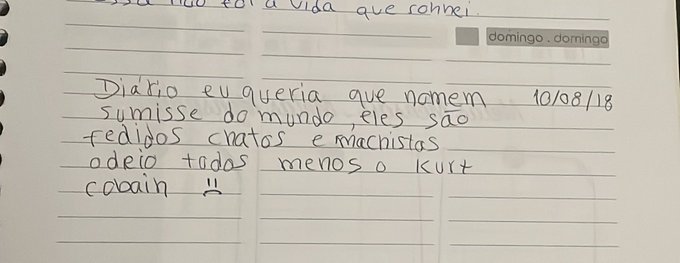 vida que sonhei.
domingo . domingo
Diário eu queria que homem 10/08/18
sumisse do mundo, eles são
fedidos chatos e machistas
odeio todos menos o Kurt
cobain :(